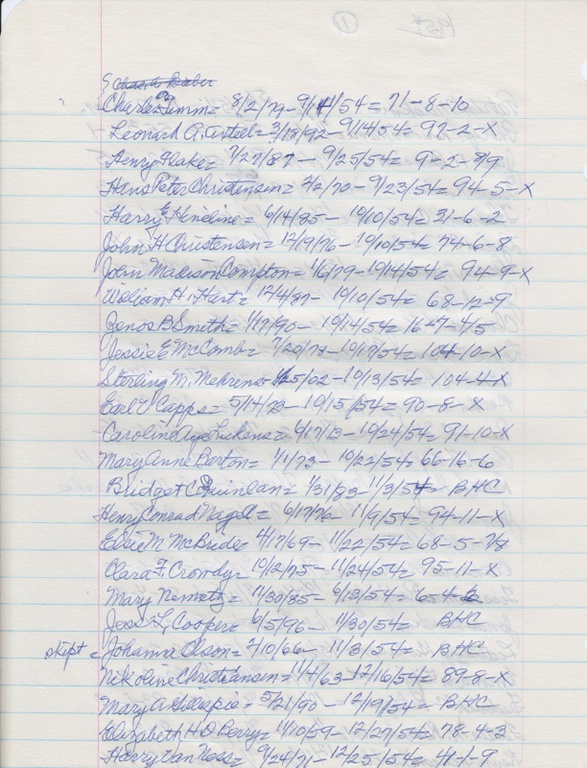 1954 ①
Charles Timm = 8/2/79 - 9/14/54 = 71 - 8 - 10
Leonard A. = 3/18/92 - 9/14/54 = 97 - 2 - X
Henry Flake = 7/27/87 - 9/25/54 = 9 - 2 - 7/9
Hans Peter Christensen = 2/2/70 - 9/23/54 = 94 - 5 - X
Harry E Hineline = 6/14/85 - 10/10/54 = 31 - 6 - 2
John H Christensen = 12/19/76 - 10/10/54 = 74 - 6 - 8
John Madison Compton = 1/6/79 - 10/14/54 = 94 - 9 - X
William H. Hart = 12/4/87 - 10/10/54 = 68 - 12 - 9
B Smith = 1/17/90 - 10/14/54 = 16 - 7 - 4/5
Jessie E McComb = 7/20/79 - 10/17/54 = 104 - 10 - X
Sterling M. = 1/25/02 - 10/13/54 = 104 - 4 - X
Earl V Capps = 5/14/73 - 10/15/54 = 90 - 8 - X
Caroline = 6/17/13 - 10/24/54 = 91 - 10 - X
Mary Anne Barton = 1/1/73 - 10/22/54 = 66 - 16 - 6
Bridget C Quinlan = 1/31/83 - 11/3/54 - BHC
Henry Conrad Nagel = 6/17/76 - 11/9/54 = 94 - 11 - X
Elsie M McBride = 4/17/69 - 11/22/54 = 68 - 5 - 7/8
Clara F. Crowdy = 10/12/75 - 11/24/54 = 95 - 11 - X
Mary Nemetz = 11/30/85 - 6/13/54 = 6 - 4 -
Jess L. Cooper = 6/5/96 - 11/30/54 = BHC
skipt = Johanna Olson = 2/10/66 - 11/3/54 = BHC
Nikoline Christiansen = 11/4/63 - 12/16/54 = 89 - 8 - X
Mary A Gillespie = 5/21/90 - 12/19/54 - BHC
Elizabeth H D Berry = 11/10/59 - 12/27/54 = 78 - 4 - 3
Harry Van Ness = 9/24/71 - 12/25/54 = 41 - 1 - 9